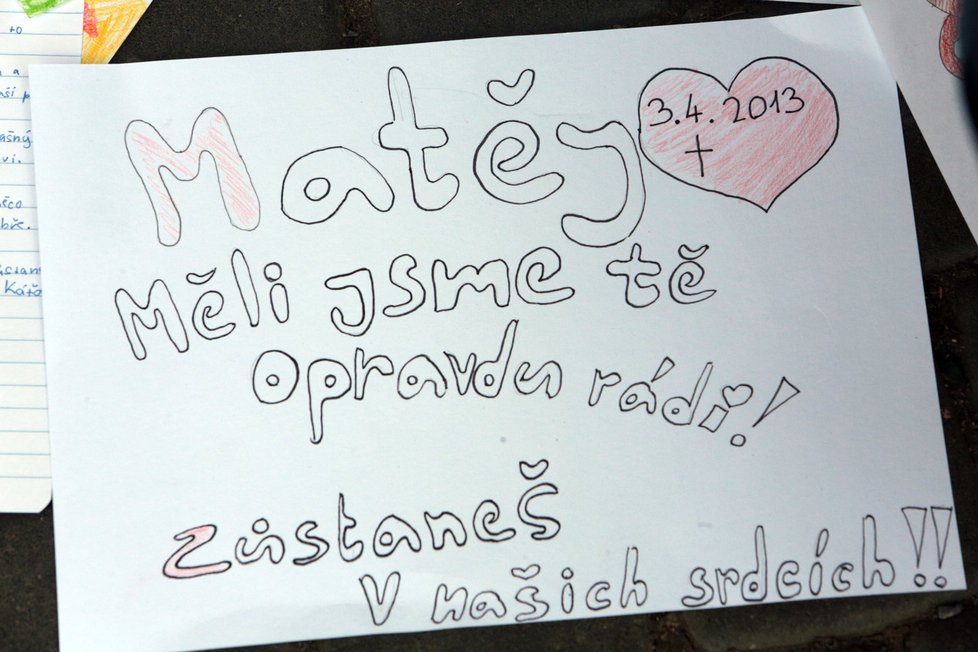 to
a
Matěj
3.4. 2013
Měli jsme tě
opravdu rádi!
Zůstaneš
v našich srdcích!!